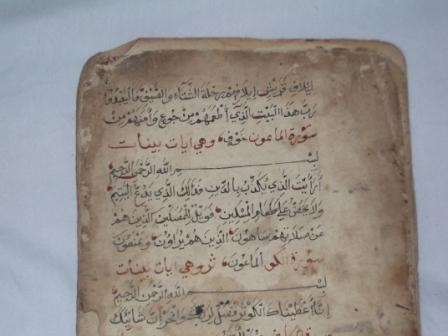 لإيلاف قريش إيلافهم رحلة الشتاء والصيف فليعبدوا
رب هذا البيت الذي أطعمهم من جوع وآمنهم من
سورة الماعون خوف وهي آيات بينات
بسم الله الرحمن الرحيم
أرأيت الذي يكذب بالدين فذلك الذي يدع اليتيم
ولا يحض على طعام المسكين فويل للمصلين الذين هم
عن صلاتهم ساهون الذين هم يراؤن ويمنعون
سورة الكو الماعون ثر وهي آيات بينات
بسم الله الرحمن الرحيم
إنا أعطيناك الكوثر فصل لربك وانحر إن شانئك